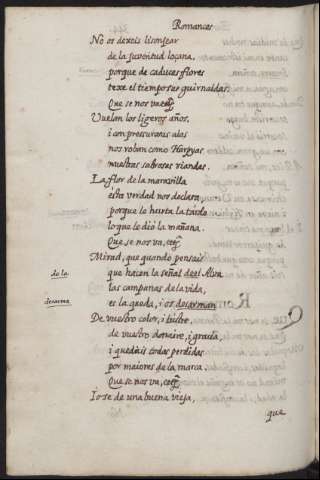 Romances
No os dexeis lisonjear
de la juventud loçana,
porque de caducas flores
texe el tiempo sus guirnaldas.
Que se nos va etc.
Vuelan los ligeros años,
i con pressurosas alas
nos roban como Harpyas
nuestras sabrosas viandas.
La flor de la maravilla
esta verdad nos declara,
porque le hurta la tarde
lo que le dio la mañana.
Que se nos va, etc.
Mirad, que quando pensais
de la que hacen la señal del Alva
las campanas de la vida,
desarma es la queda, i os desarman
De vuestro color, i lustre,
de vuestro donaire, i gracia,
i quedais todas perdidas
por maiores de la marca.
Que se nos va, etc.
Io se de una buena vieja,
que